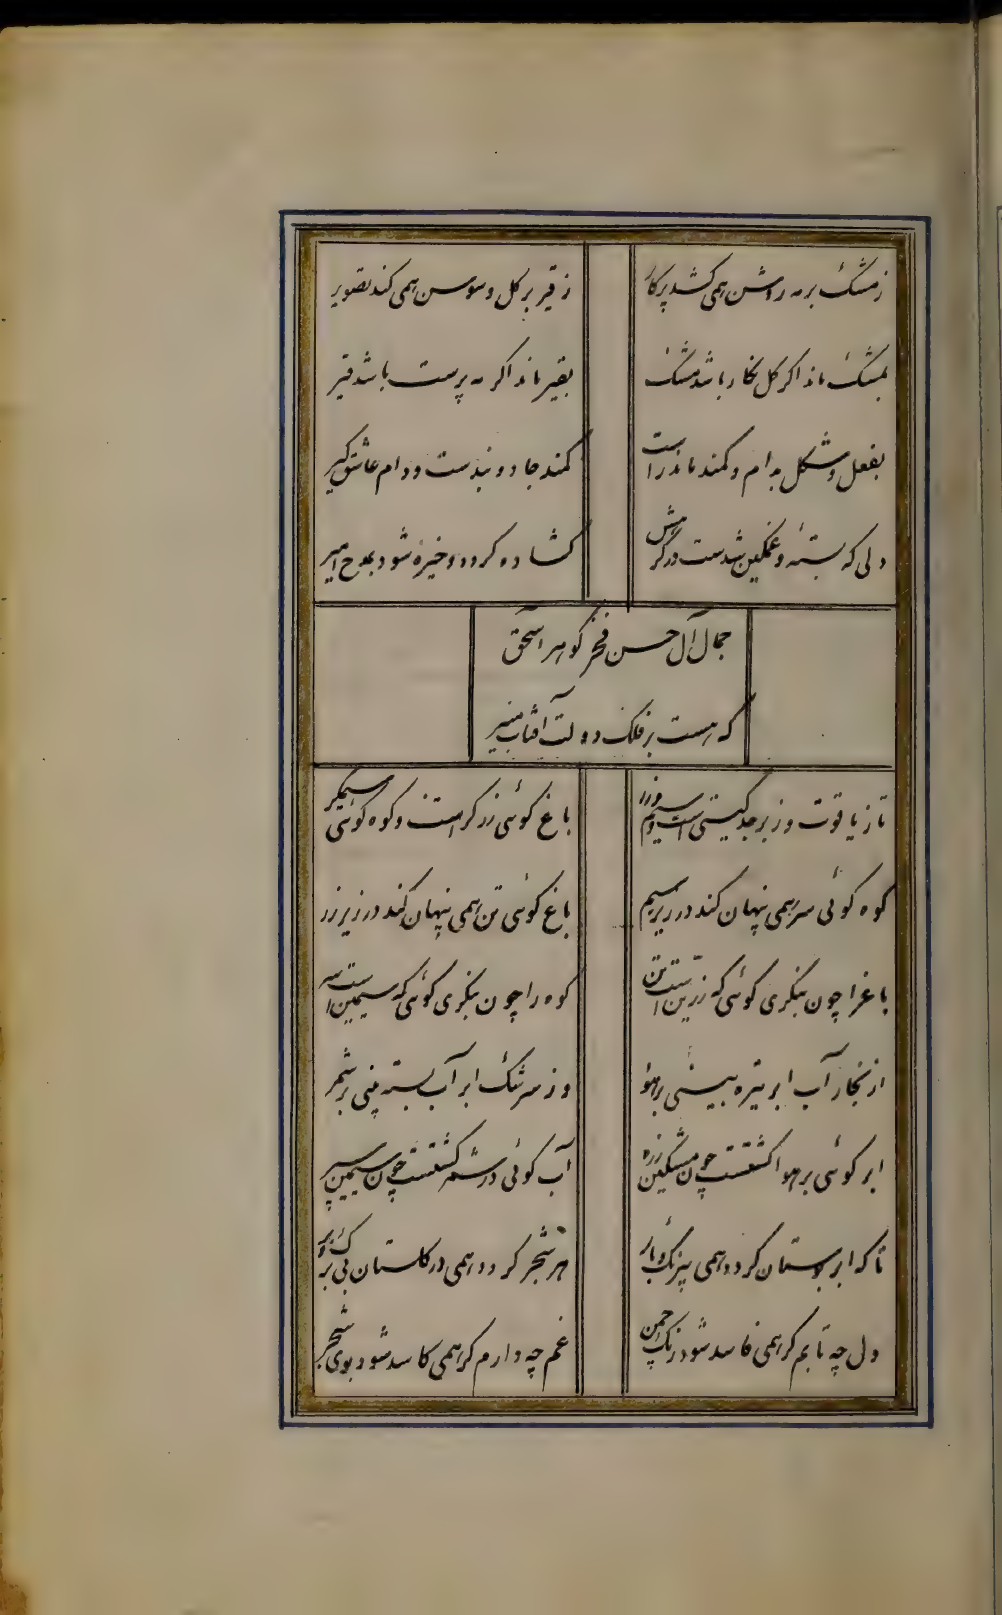 زمشک بر مه روشن همی کشد پرکار
ز قیر بر کل و سوسن همی کند تصویر
بمشک ماند اکر کل نکار باشد مشک
بقیر ماند اکر مه پرست باشد قیر
بفعل و شکل بدام و کمند ماند راست
کمند جادو بندست و دام عاشق کیر
دلی که بسته و غمکین شدست در کرهش
کشاده کردد و خیره شود بمدح امیر
جمال آل حسن فخر کوهر اسحق
که هست بر فلک دولت آفتاب منیر
تا ز یاقوت و زبرجد کیتی است و سیم و زر
باغ کوئی زرکر است و کوه کوئی سیمکر
کوه کوئی سر همی پنهان کند در زیر سیم
باغ کوئی تن همی پنهان کند در زیر زر
باغ را چون بنکری کوئی که زرین است تن
کوه را چون بنکری کوئی که سیمین است سر
از بخار آب ابر تیره بینی بر هوا
وز سرشک ابر آب بسته بینی بر شمر
ابر کوئی بر هوا کشتست چون مشکین زره
آب کوئی در شمر کشتست چون سیمین سپر
تا که ابر بوستان کردد همی بیرنک و بار
هر شجر کردد همی در کلستان بی برک و بر
دل چه تابم کر همی فاسد شود رنک چمن
غم چه دارم کر همی کاسد شود بوی شجر